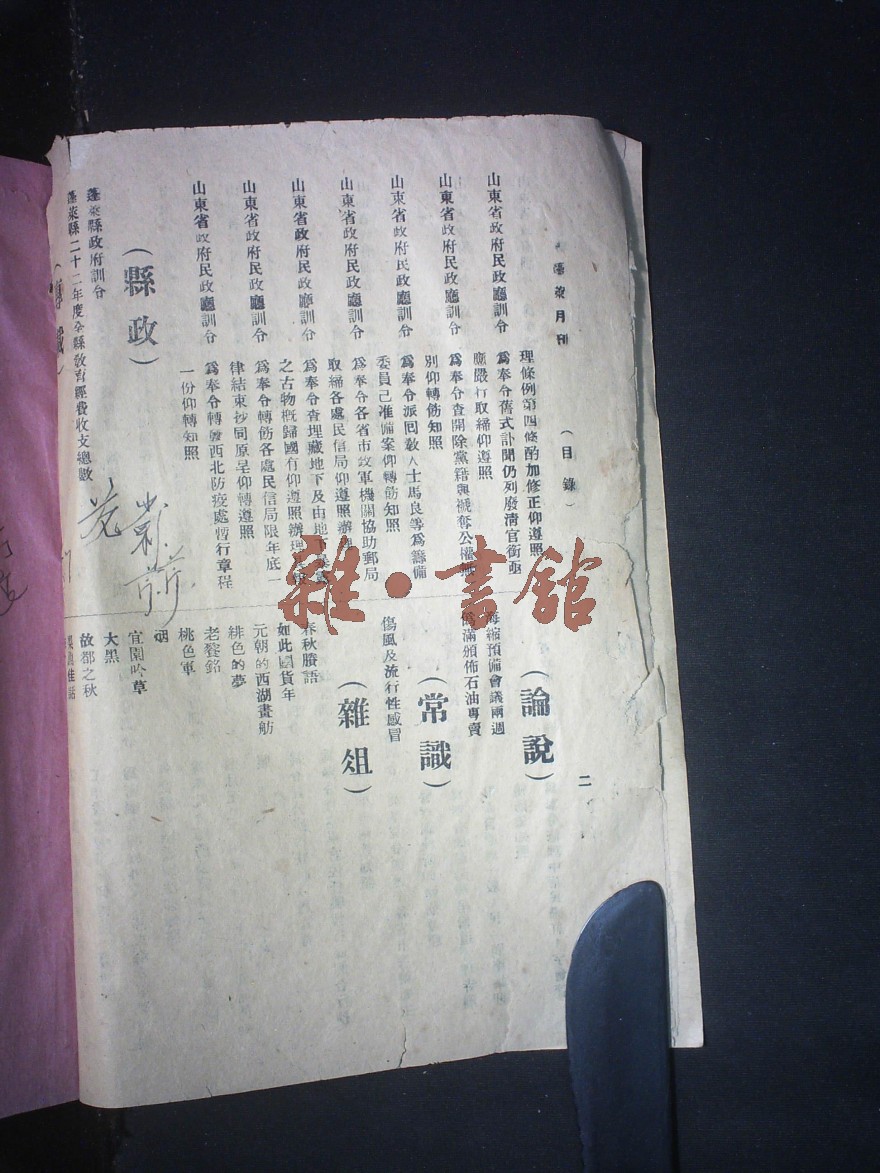 蓬萊月刊 (目錄) 二
理條例第四條酌加修正仰遵照
山東省政府民政廳訓令 爲奉令舊式訃聞仍列廢淸官銜亟
應嚴行取締仰遵照
山東省政府民政廳訓令 爲奉令查開除黨籍與褫奪公權
別仰轉飭知照
山東省政府民政廳訓令 爲奉令派回敎人士馬良等爲籌備
委員已准備案仰轉飭知照
山東省政府民政廳訓令 爲奉令各省市政軍機關協助郵局
取締各處民信局仰遵照辦理
山東省政府民政廳訓令 爲奉令查埋藏地下及由地下暴露
之古物槪歸國有仰遵照辦理
山東省政府民政廳訓令 爲奉令轉飭各處民信局限年底一
律結束抄同原呈仰轉遵照
山東省政府民政廳訓令 爲奉令轉發西北防疫處暫行章程
一份仰轉知照
(縣政)
蓬萊縣政府訓令
蓬萊縣二十二年度全縣敎育經費收支總數
(論說)
海縮預備會議兩週
僞滿頒佈石油專賣
(常識)
傷風及流行性感冒
(雜俎)
春秋賸語
如此國貨年
元朝的西湖畫舫
緋色的夢
老饕銘
桃色軍
烟
宜園吟草
大黑
故都之秋
雜·書館